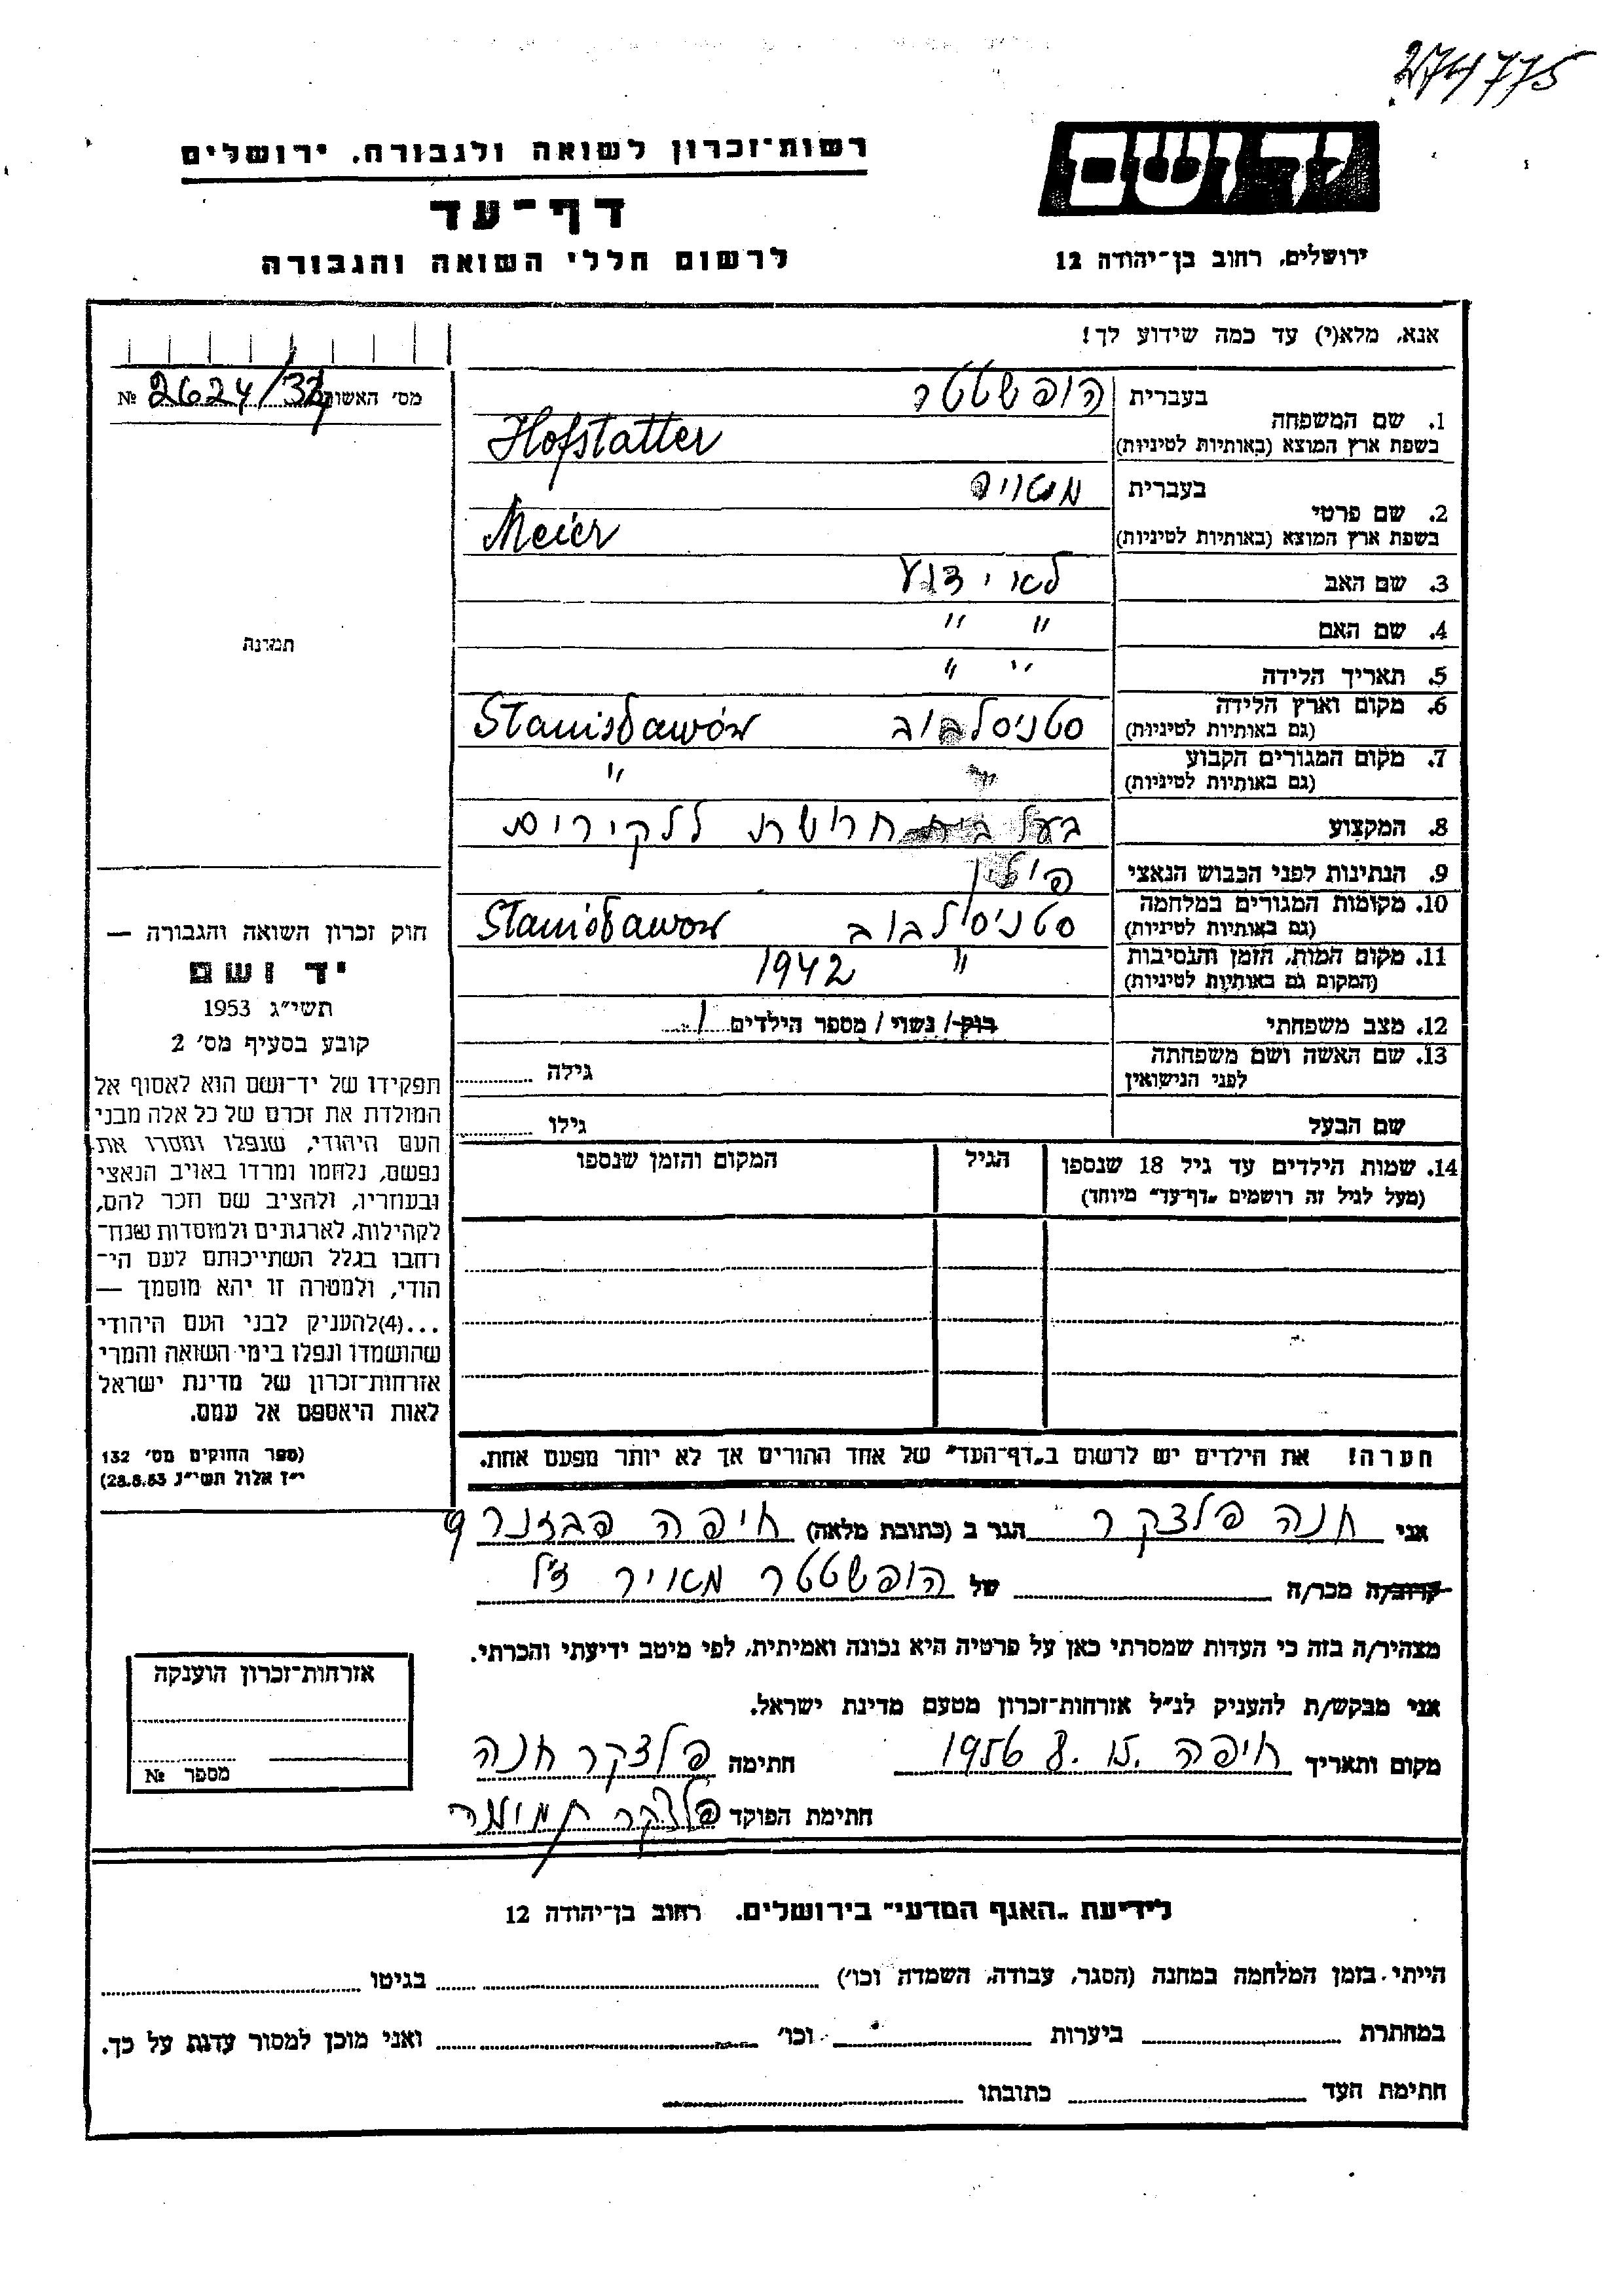 274775
יד ושם
רשות־זכרון לשואה ולגבורה, ירושלים
דף־עד
לרשום חללי השואה והגבורה
ירושלים, רחוב בן־יהודה 12
אנא, מלא(י) עד כמה שידוע לך!
מס׳ האשור № 2624/
1. שם המשפחה בעברית הופשטטר
בשפת ארץ המוצא (באותיות לטיניות) Hofstatter
2. שם פרטי בעברית
בשפת ארץ המוצא (באותיות לטיניות) Meier
3. שם האב לא ידוע
4. שם האם " "
5. תאריך הלידה " "
6. מקום וארץ הלידה (גם באותיות לטיניות) סטניסלבוב Stanisławów
7. מקום המגורים הקבוע (גם באותיות לטיניות) " "
8. המקצוע בעל בית חרושת ללקירים
9. הנתינות לפני הכבוש הנאצי
10. מקומות המגורים במלחמה (גם באותיות לטיניות) סטניסלבוב Stanisławow
11. מקום המות, הזמן והנסיבות (המקום גם באותיות לטיניות) " 1942
12. מצב משפחתי רוק/ נשוי/ מספר הילדים 1
13. שם האשה ושם משפחתה לפני הנישואין גילה
שם הבעל גילו
14. שמות הילדים עד גיל 18 שנספו הגיל המקום והזמן שנספו
(מעל לגיל זה רושמים „דף־עד" מיוחד)
הערה! את הילדים יש לרשום ב„דף־העד" של אחד ההורים אך לא יותר מפעם אחת.
תמונה
חוק זכרון השואה והגבורה —
יד ושם
תשי״ג 1953
קובע בסעיף מס׳ 2
תפקידו של יד־ושם הוא לאסוף אל
המולדת את זכרם של כל אלה מבני
העם היהודי, שנפלו ומסרו את
נפשם, נלחמו ומרדו באויב הנאצי
ובעוזריו, ולהציב שם וזכר להם,
לקהילות, לארגונים ולמוסדות שנח־
רבו בגלל השתייכותם לעם הי־
הודי, ולמטרה זו יהא מוסמך —
...(4)להעניק לבני העם היהודי
שהושמדו ונפלו בימי השואה והמרי
אזרחות־זכרון של מדינת ישראל
לאות היאספם אל עמם.
(ספר החוקים מס׳ 132
י״ז אלול תשי״ג 28.8.53)
אני חנה פלצקר הגר ב (כתובת מלאה) חיפה 9
קרוב/ה מכר/ה של הופשטטר מאיר ז״ל
מצהיר/ה בזה כי העדות שמסרתי כאן על פרטיה היא נכונה ואמיתית, לפי מיטב ידיעתי והכרתי.
אני מבקש/ת להעניק לנ״ל אזרחות־זכרון מטעם מדינת ישראל.
מקום ותאריך חיפה 15. 8. 1956 חתימה פלצקר חנה
חתימת הפוקד פלצקר
אזרחות־זכרון הוענקה
מספר №
לידיעת „האגף המדעי" בירושלים, רחוב בן־יהודה 12
הייתי בזמן המלחמה במחנה (הסגר, עבודה, השמדה וכו׳) בגיטו
במחתרת ביערות וכו׳ ואני מוכן למסור עדות על כך.
חתימת העד כתובתו